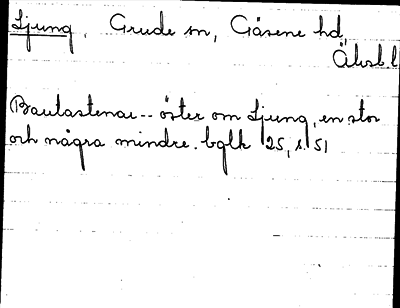 Ljung. Grude sn, Gäsene hd,
Älvsb.l
Bautastenar -- öster om Ljung, en stor
och några mindre. bglk 25, s. 51